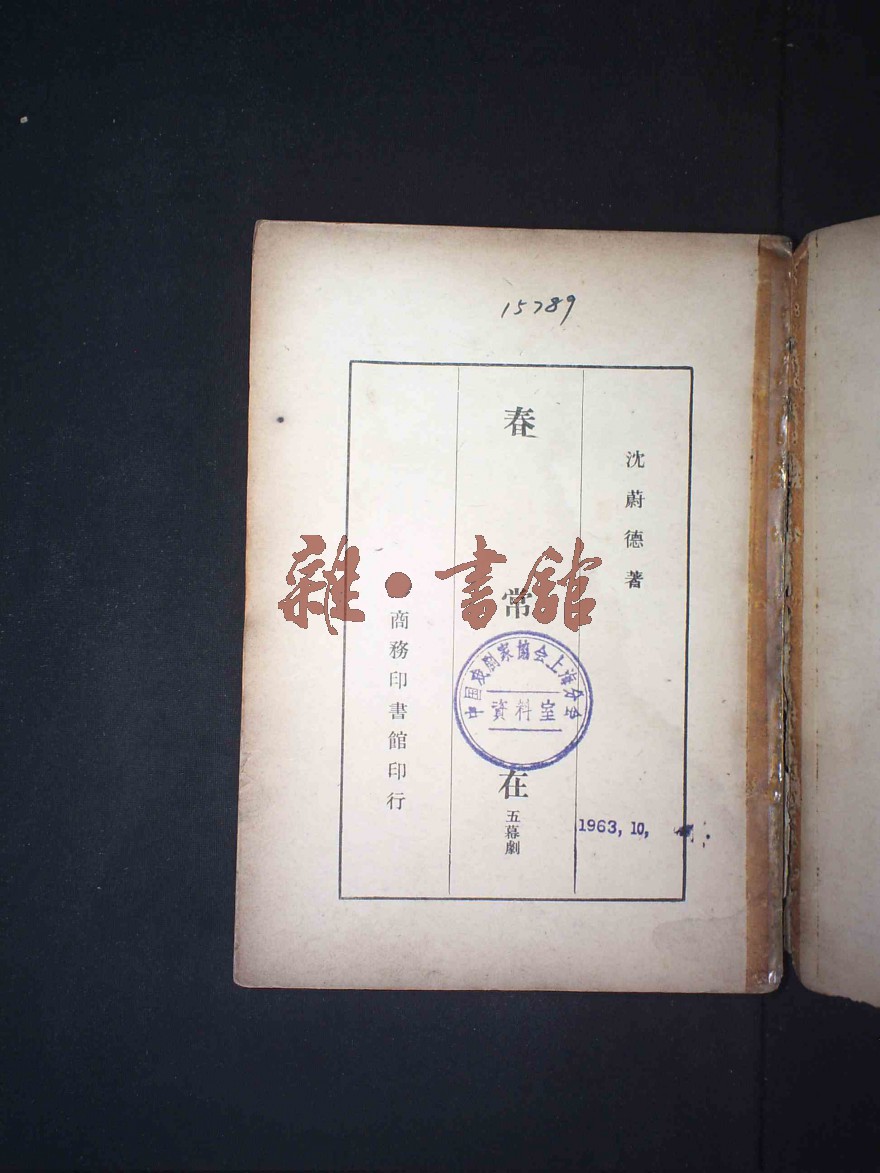 15789
沈蔚德著
春常在
五幕劇
商務印書館印行
中国戏剧家協会上海分会
資料室
1963, 10,
雜·書館